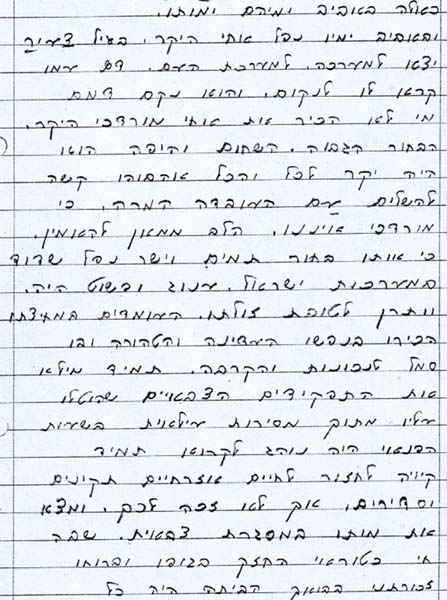 כאלה באביב ימיהם ימותו.
ובאביב ימיו נפל אחי היקר. בגיל צעיר
יצאו למערכה, למערכת העם. דם עמו
קראו לו לנקום, והוא נקם דמם
מי לא הכיר את אחי מורדכי היקר,
הבחור הגבוה, השחום והיפה הוא
היה יקר לכל והכל אהבוהו קשה
להשלים עם העובדה המרה, כי
מורדכי איננו. הלב ממאן להאמין,
כי אותו בחור תמים וישר נפל שדוד
במערכות ישראל. ענוג ופשוט היה,
וותרן לטובת זולתו. העומדים במחיצתו
הכירו בנפשו העדינה והטהורה ובו
סמל לנכונות והקרבה. תמיד מילא
את התפקידים הצבאיים שהוטלו
עליו מתוך מסירות עילאית בשעות
הפנאי היה נוהג לקרוא תמיד
קיוה לחזור לחיים אזרחיים תקינים
וסדירים, אך לא זכה לכך, ומצא
את מותו במסגרת צבאית. שבה
חי כטוראי החזק בגופו וברוחו
זכורתני בבואך הביתה היה כל